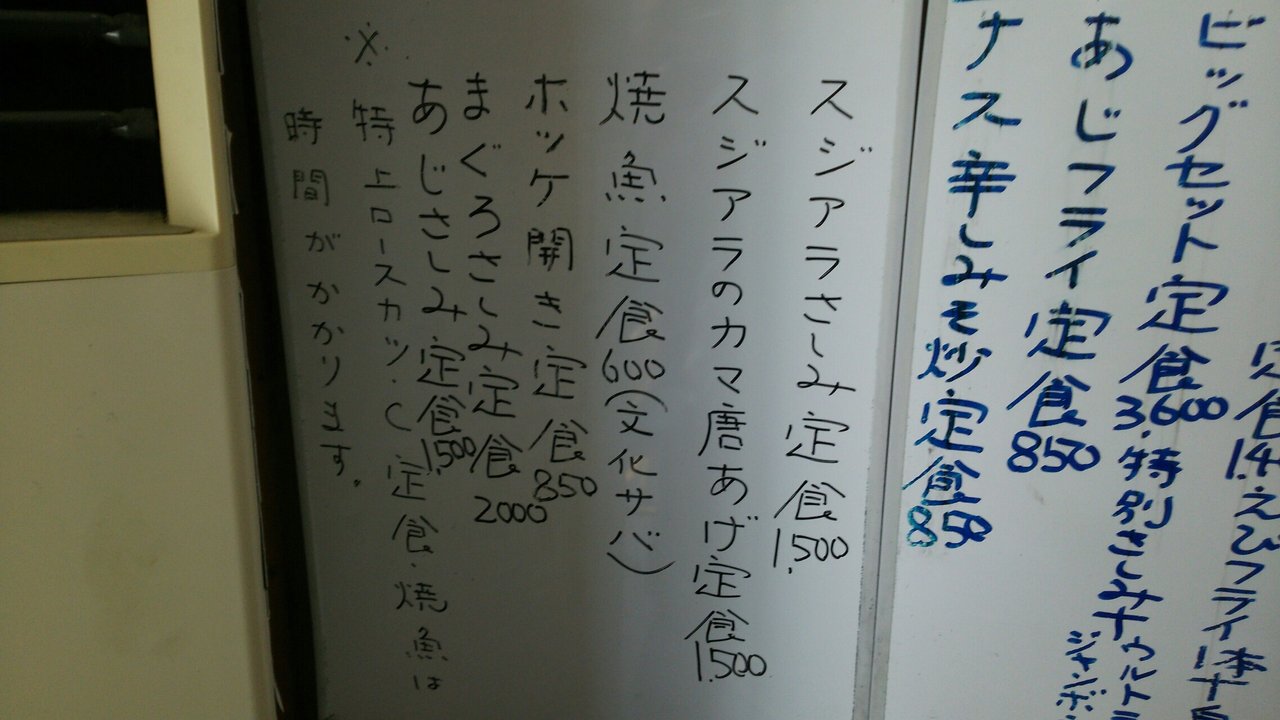 定食1.4
えびフライ一本
ビッグセット定食3.600
特別さしみ+ウルトラ
ジャンボ
あじフライ定食850
ナス辛しみそ炒定食850
スジアラさしみ定食1.500
スジアラのカマ唐あげ定食1.500
焼魚定食600(文化サバ)
ホッケ開き定食850
まぐろさしみ定食2000
あじさしみ定食1.500
※特上ロースカツ・C定食・焼魚は
時間がかかります。